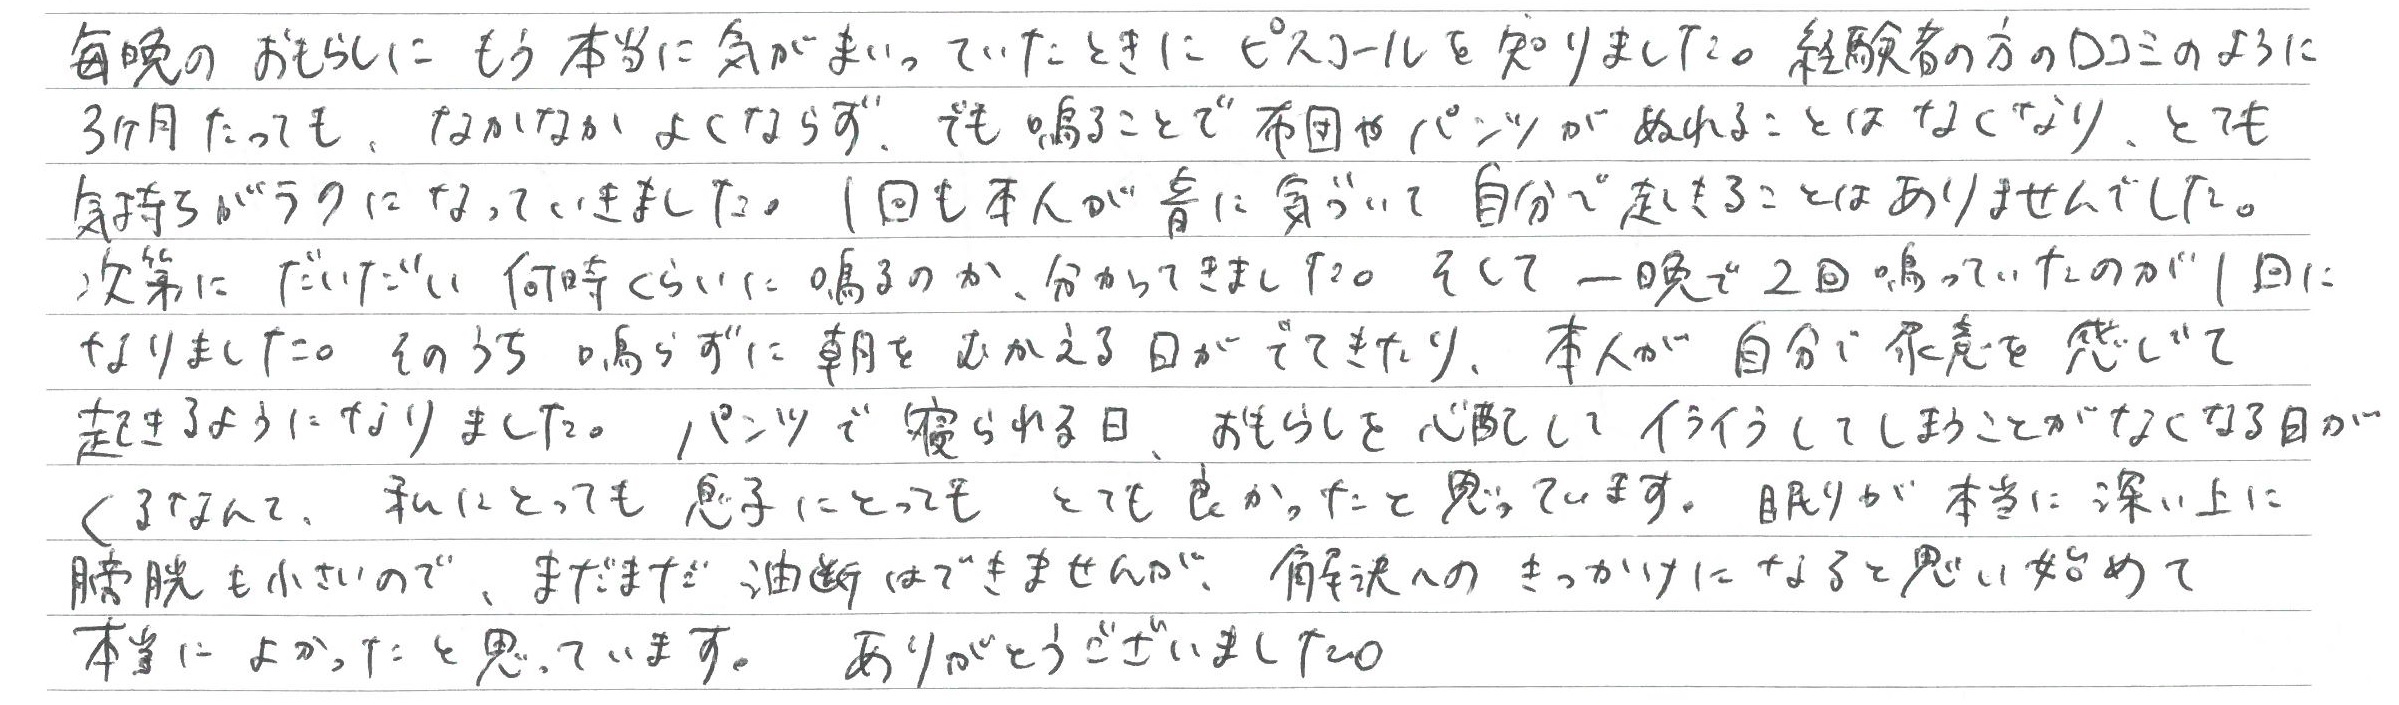 毎晩の おもらしに もう 本当に 気が まいっていたときに ピスコールを 知りました。経験者の方の口コミのように
3ケ月 たっても、なかなか よくならず、でも 鳴ることで 布団や パンツが ぬれることは なくなり、とても
気持ちがラクに なっていきました。1回も本人が 音に 気づいて 自分で 起きることはありませんでした。
次第に だいだい 何時くらいに 鳴るのか、分かってきました。そして 一晩で 2回 鳴っていたのが 1回に
なりました。そのうち 鳴らずに 朝を むかえる 日が でてきたり、本人が 自分で 尿意を 感じて
起きるようになりました。パンツで 寝られる日、おもらしを 心配して イライラしてしまうことがなくなる日が
くるなんて、私にとっても 息子にとっても とても 良かったと 思っています。眠りが 本当に 深い上に
膀胱も小さいので、まだまだ 油断はできませんが、解決への きっかけに なると思い 始めて
本当に よかったと思っています。ありがとうございました。